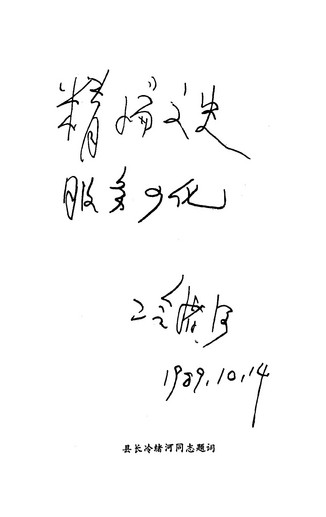 精编文史
服务四化
冷绪河
1989.10.14
县长冷绪河同志题词